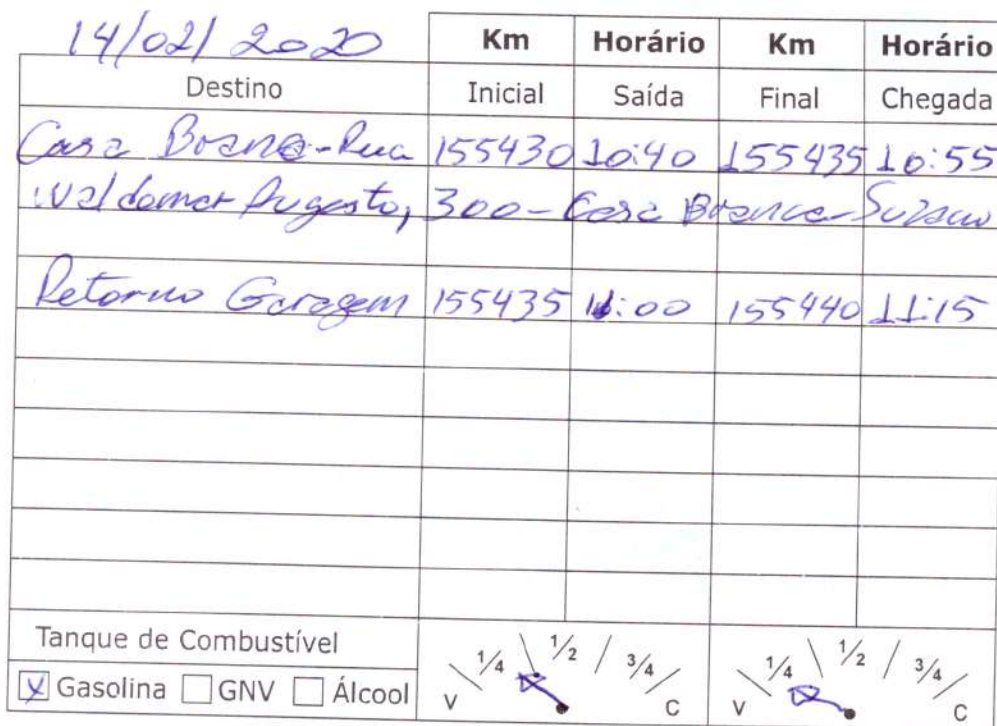 14/02/2020 Km Horário Km Horário
Destino Inicial Saída Final Chegada
Casa Branca-Rua 155430 10:40 155435 10:55
Waldomar Augusto, 300-Casa Branca-Suzano
Retorno Garagem 155435 11:00 155440 11:15
Tanque de Combustível
Gasolina GNV Álcool
V 1/4 1/2 3/4 C V 1/4 1/2 3/4 C